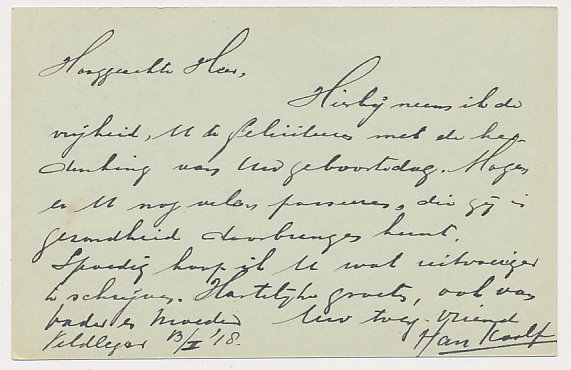 Hooggeachte Heer,
Hierbij neem ik de
vrijheid, U te feliciteeren met de her-
denking van Uw geboortedag. Mogen
er U nog velen passeeren, die gij in
gezondheid doorbrengen kunt.
Spoedig hoop ik U wat uitvoeriger
te schrijven. Hartelijke groeten, ook van
vader en moeder Uw toeg. vriend
Veldleger 13/II '18. Han